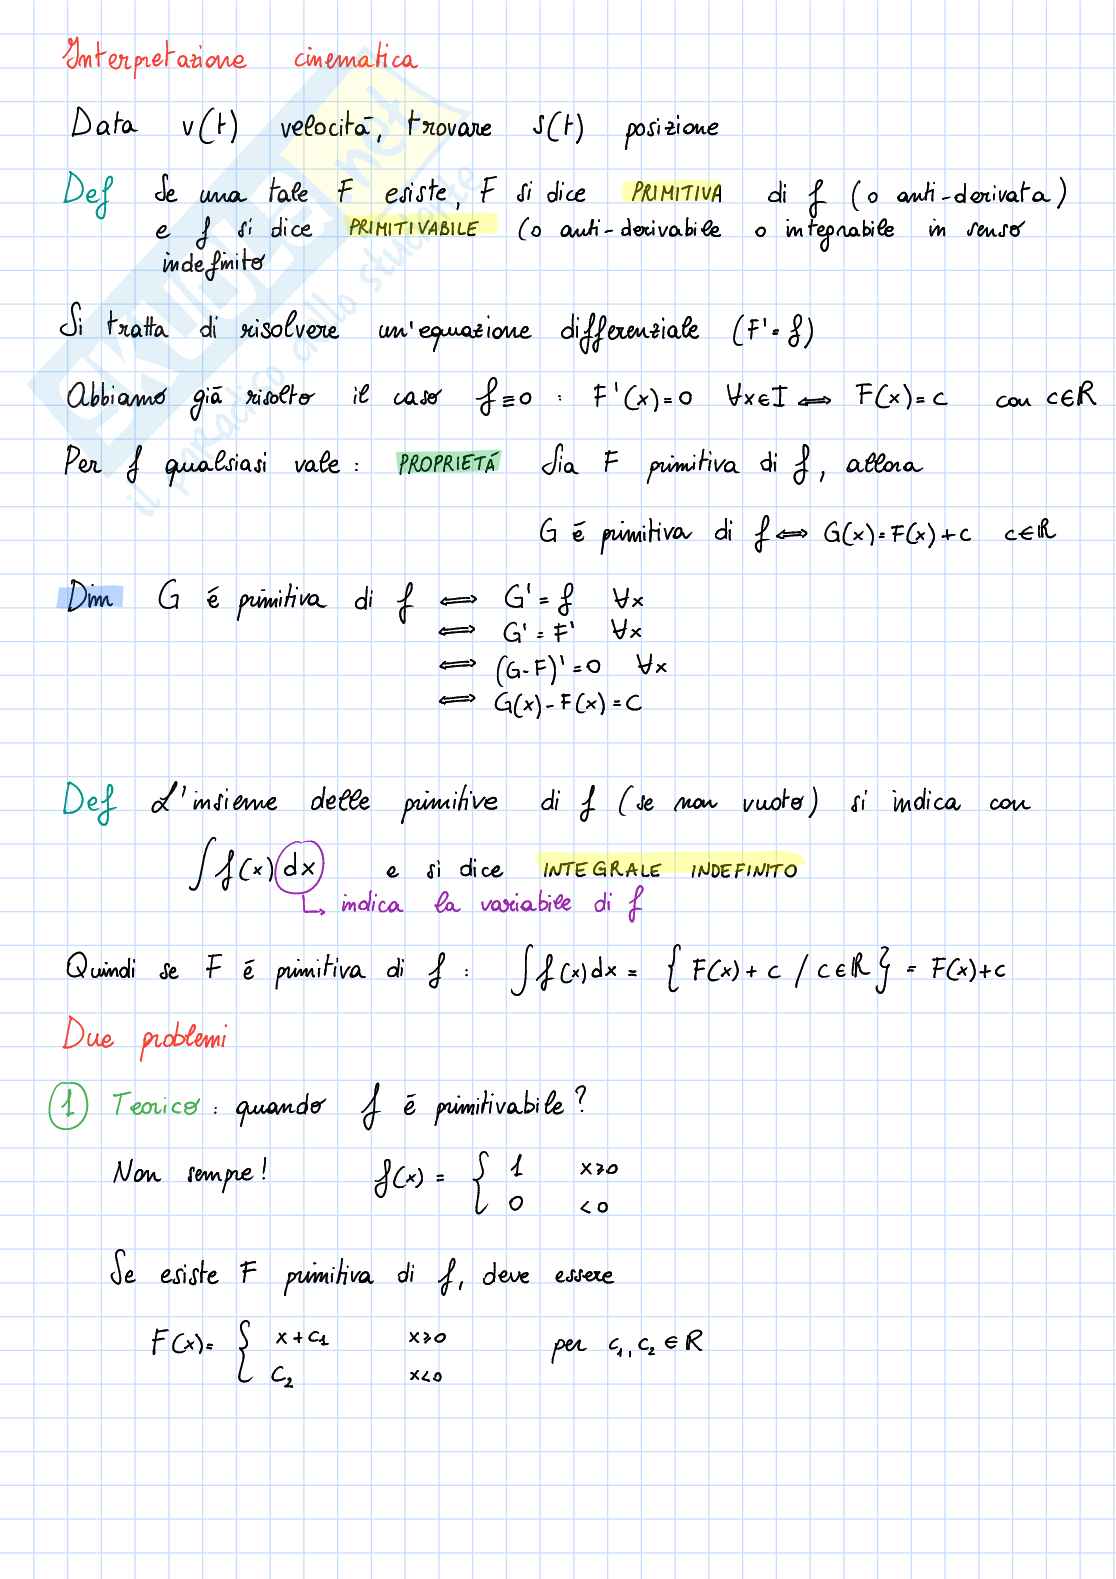 Interpretazione cinematica
Data v(t) velocitá, trovare s(t) posizione
Def Se una tale F esiste, F si dice PRIMITIVA di f (o anti-derivata)
e f si dice PRIMITIVABILE (o anti-derivabile o integrabile in senso
indefinito
Si tratta di risolvere un'equazione differenziale (F'=f)
Abbiamo giá risolto il caso f≡0 : F'(x)=0 ∀x∈I ⟺ F(x)=c con c∈R
Per f qualsiasi vale : PROPRIETÁ Sia F primitiva di f, allora
G é primitiva di f ⟺ G(x)=F(x)+c c∈R
Dim G é primitiva di f ⟺ G'=f ∀x
⟺ G'=F' ∀x
⟺ (G-F)'=0 ∀x
⟺ G(x)-F(x)=C
Def L'insieme delle primitive di f (se non vuoto) si indica con
∫f(x)dx e si dice INTEGRALE INDEFINITO
↳ indica la variabile di f
Quindi se F é primitiva di f : ∫f(x)dx = {F(x)+c / c∈R} = F(x)+c
Due problemi
1 Teorico : quando f é primitivabile?
Non sempre! f(x) = { 1 x≥0
0 <0
Se esiste F primitiva di f, deve essere
F(x)= { x+c₁ x≥0 per c₁, c₂ ∈ R
C₂ x<0
SKUOLA.net
il paradiso dello studente